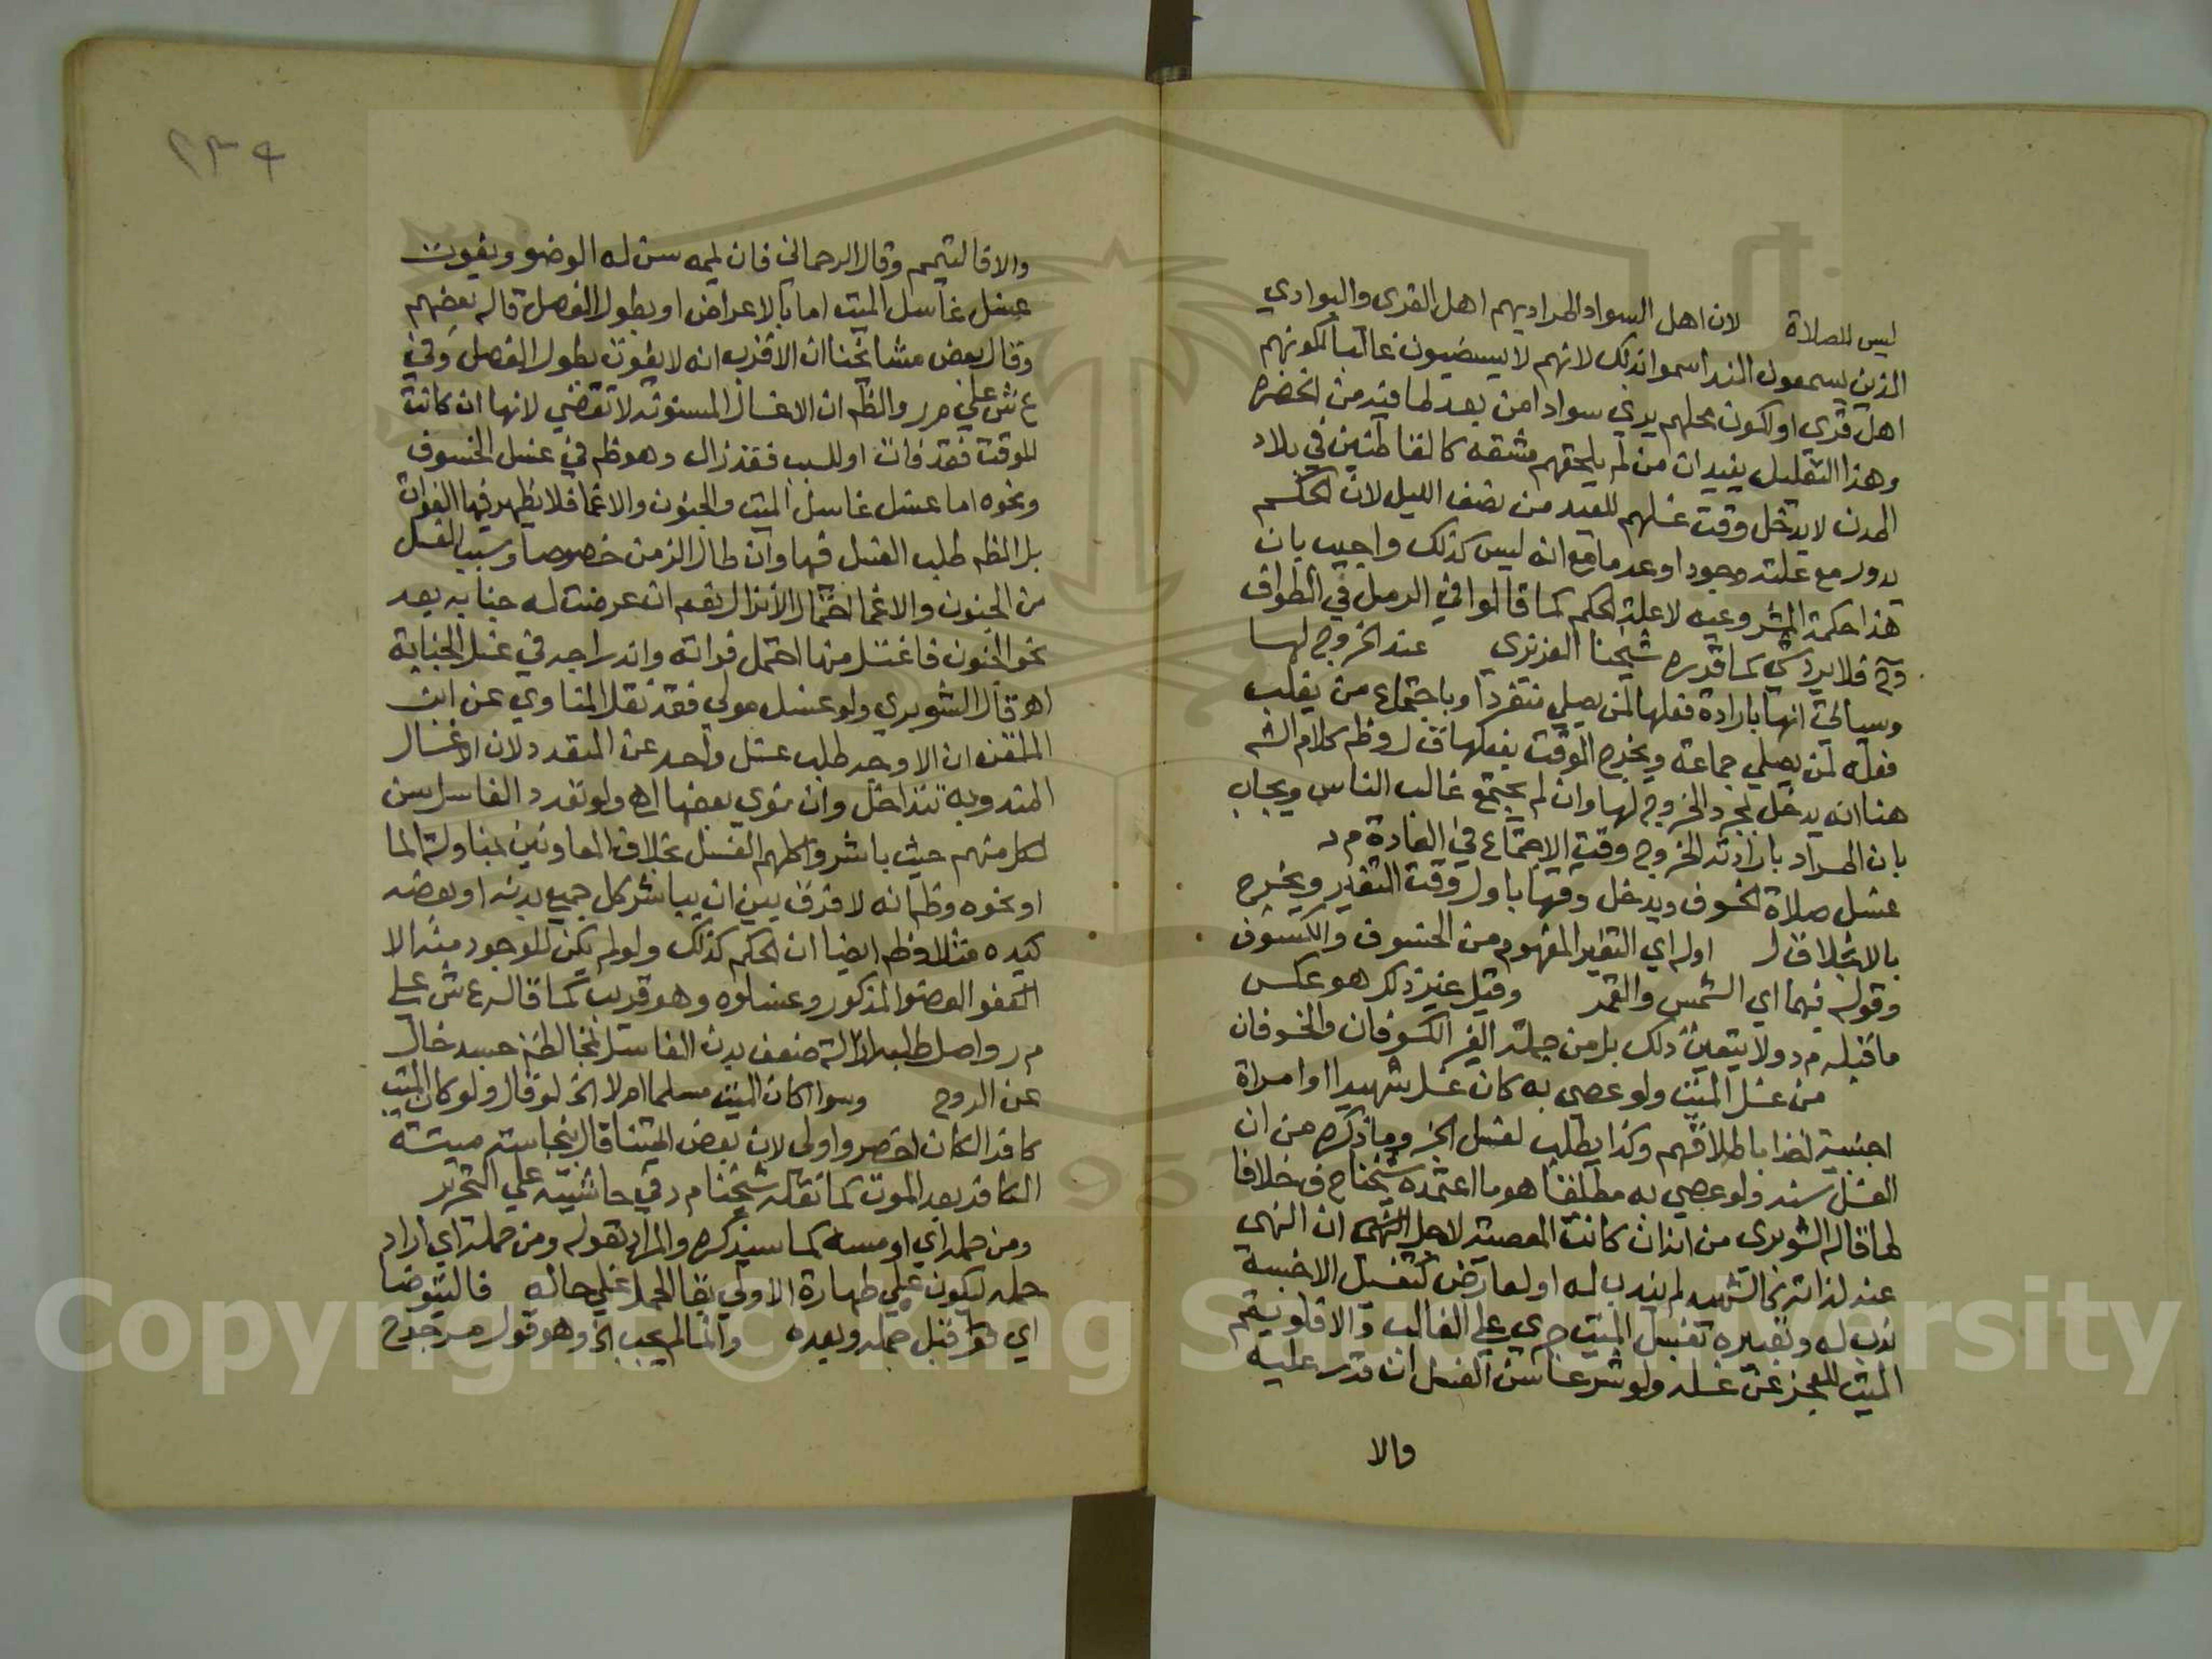 ليس للصلاة لان اهل السواد المراد بهم اهل القرى والبوادي
الذين يسمعون الندا سموا بذلك لانهم لا يستضيون غالبا لكونهم
اهل قرى او لكون محلهم يرى سوادا من بعد لما فيه من الخضره
وهذا التعليل يفيد ان من لم يلحقهم مشقه كالقاطنين في بلاد
المدن لا يدخل وقت غسلهم للعيد من نصف الليل لان الحكم
يدور مع علته وجودا وعدما مع انه ليس كذلك واجيب بان
هذا حكمة المشروعيه لا علة الحكم كما قالوا في الرمل في الطواف
وح فلا يرد شي كما قرره شيخنا العزيزي عند الخروج لها
وسياتي انها بارادة فعلها لمن يصلي منفردا وباجتماع من يغلب
فعله لمن يصلي جماعة ويخرج الوقت بفعلها ق ل وظم كلام الشم
هنا انه يدخل بمجرد الخروج لها وان لم يجتمع غالب الناس ويجاب
بان المراد بارادته الخروج وقت الاجتماع في العادة م د
غسل صلاة الخسوف ويدخل وقتها باول وقت التغير ويخرج
بالانجلا ق ل اوله اي التغير المفهوم من الخسوف والكسوف
وقوله فيهما اي الشمس والقمر وقيل غير ذلك هو عكس
ما قبله م د ولا يتعين ذلك بل من جملة الغير الكسوفان والخسوفان
من غسل الميت ولو عصى به كان غسل شهيدا او امراة
اجنبية اخذا باطلاقهم وكذا يطلب لغسل الخ وما ذكره من ان
الغسل سنه ولو عصي به مطلقا هو ما اعتمده شيخنا ح ف خلافا
لما قاله الشوبري من انه ان كانت المعصية لاجل النهي ان النهي
عنه لذاته كالشهيد لم يندب له او لعارض كتغسل الاجنبية
ندب له وتعبيره تغسيل الميت جري علي الغالب والا فلو يمم
الميت للعجز عن غسله ولو شرعا سن الغسل ان قدر عليه
والا
٢٣٩
والا فالتيمم وقال الرحماني فان يممه سن له الوضو ويفوت
غسل غاسل الميت اما بالاعراض او بطول الفصل قاله بعضهم
وقال بعض مشائخنا ان الاقرب انه لا يفوت بطول الفصل وفي
ع ش علي م ر والظم ان الاغسال المسنونه لا تقضي لانها ان كانت
للوقت فقد فات او للسبب فقد زال وهو ظم في غسل الخسوف
ونحوه اما غسل غاسل الميت والجنون والاغما فلا يظهر فيها الفوات
بل الظم طلب الغسل فيها وان طال الزمن خصوصا وسبب الغسل
من الجنون والاغما احتمال الانزال نعم ان عرضت له جنابه بعد
نحو الجنون فاغتسل منها احتمل فواته واندراجه في غسل الجنابة
اهـ وقال الشوبري ولو غسل موتى فقد نقل المناوي عن ابن
الملقن ان الاوجه طلب غسل واحد عن المتعدد لان الاغسال
المندوبه تتداخل وان نوى بعضها اهـ ولو تعدد الغاسل سن
لكل منهم حيث باشروا كلهم الغسل بخلاف المعاونين بمناولة الما
او نحوه وظم انه لا فرق بين ان يباشر كل جميع بدنه او بعضه
كيده مثلا وظم ايضا ان الحكم كذلك ولو لم يكن للموجود منه الا
العضو المذكور وغسلوه وهو قريب كما قاله ع ش علي
م ر واصل طلبه ازالة ضعف بدن الغاسل بمخالطة جسد خال
عن الروح وسوا اكان الميت مسلما ام لا الخ لو قال ولو كان الميت
كافرا لكان اخصر واولى لان بعض ايمتنا قال بنجاسته ميتته
الكافر بعد الموت كما نقله شيخنا م د في حاشيته علي التحرير
ومن حمله اي او مسه كما سيذكره والمراد بقوله ومن حمله اي اراد
حمله ليكون علي طهارة الاولى بقا الحمل علي حاله فاليتوضا
اي قبل حمله وبعده وانما لم يجب الخ وهو قول مرجوح